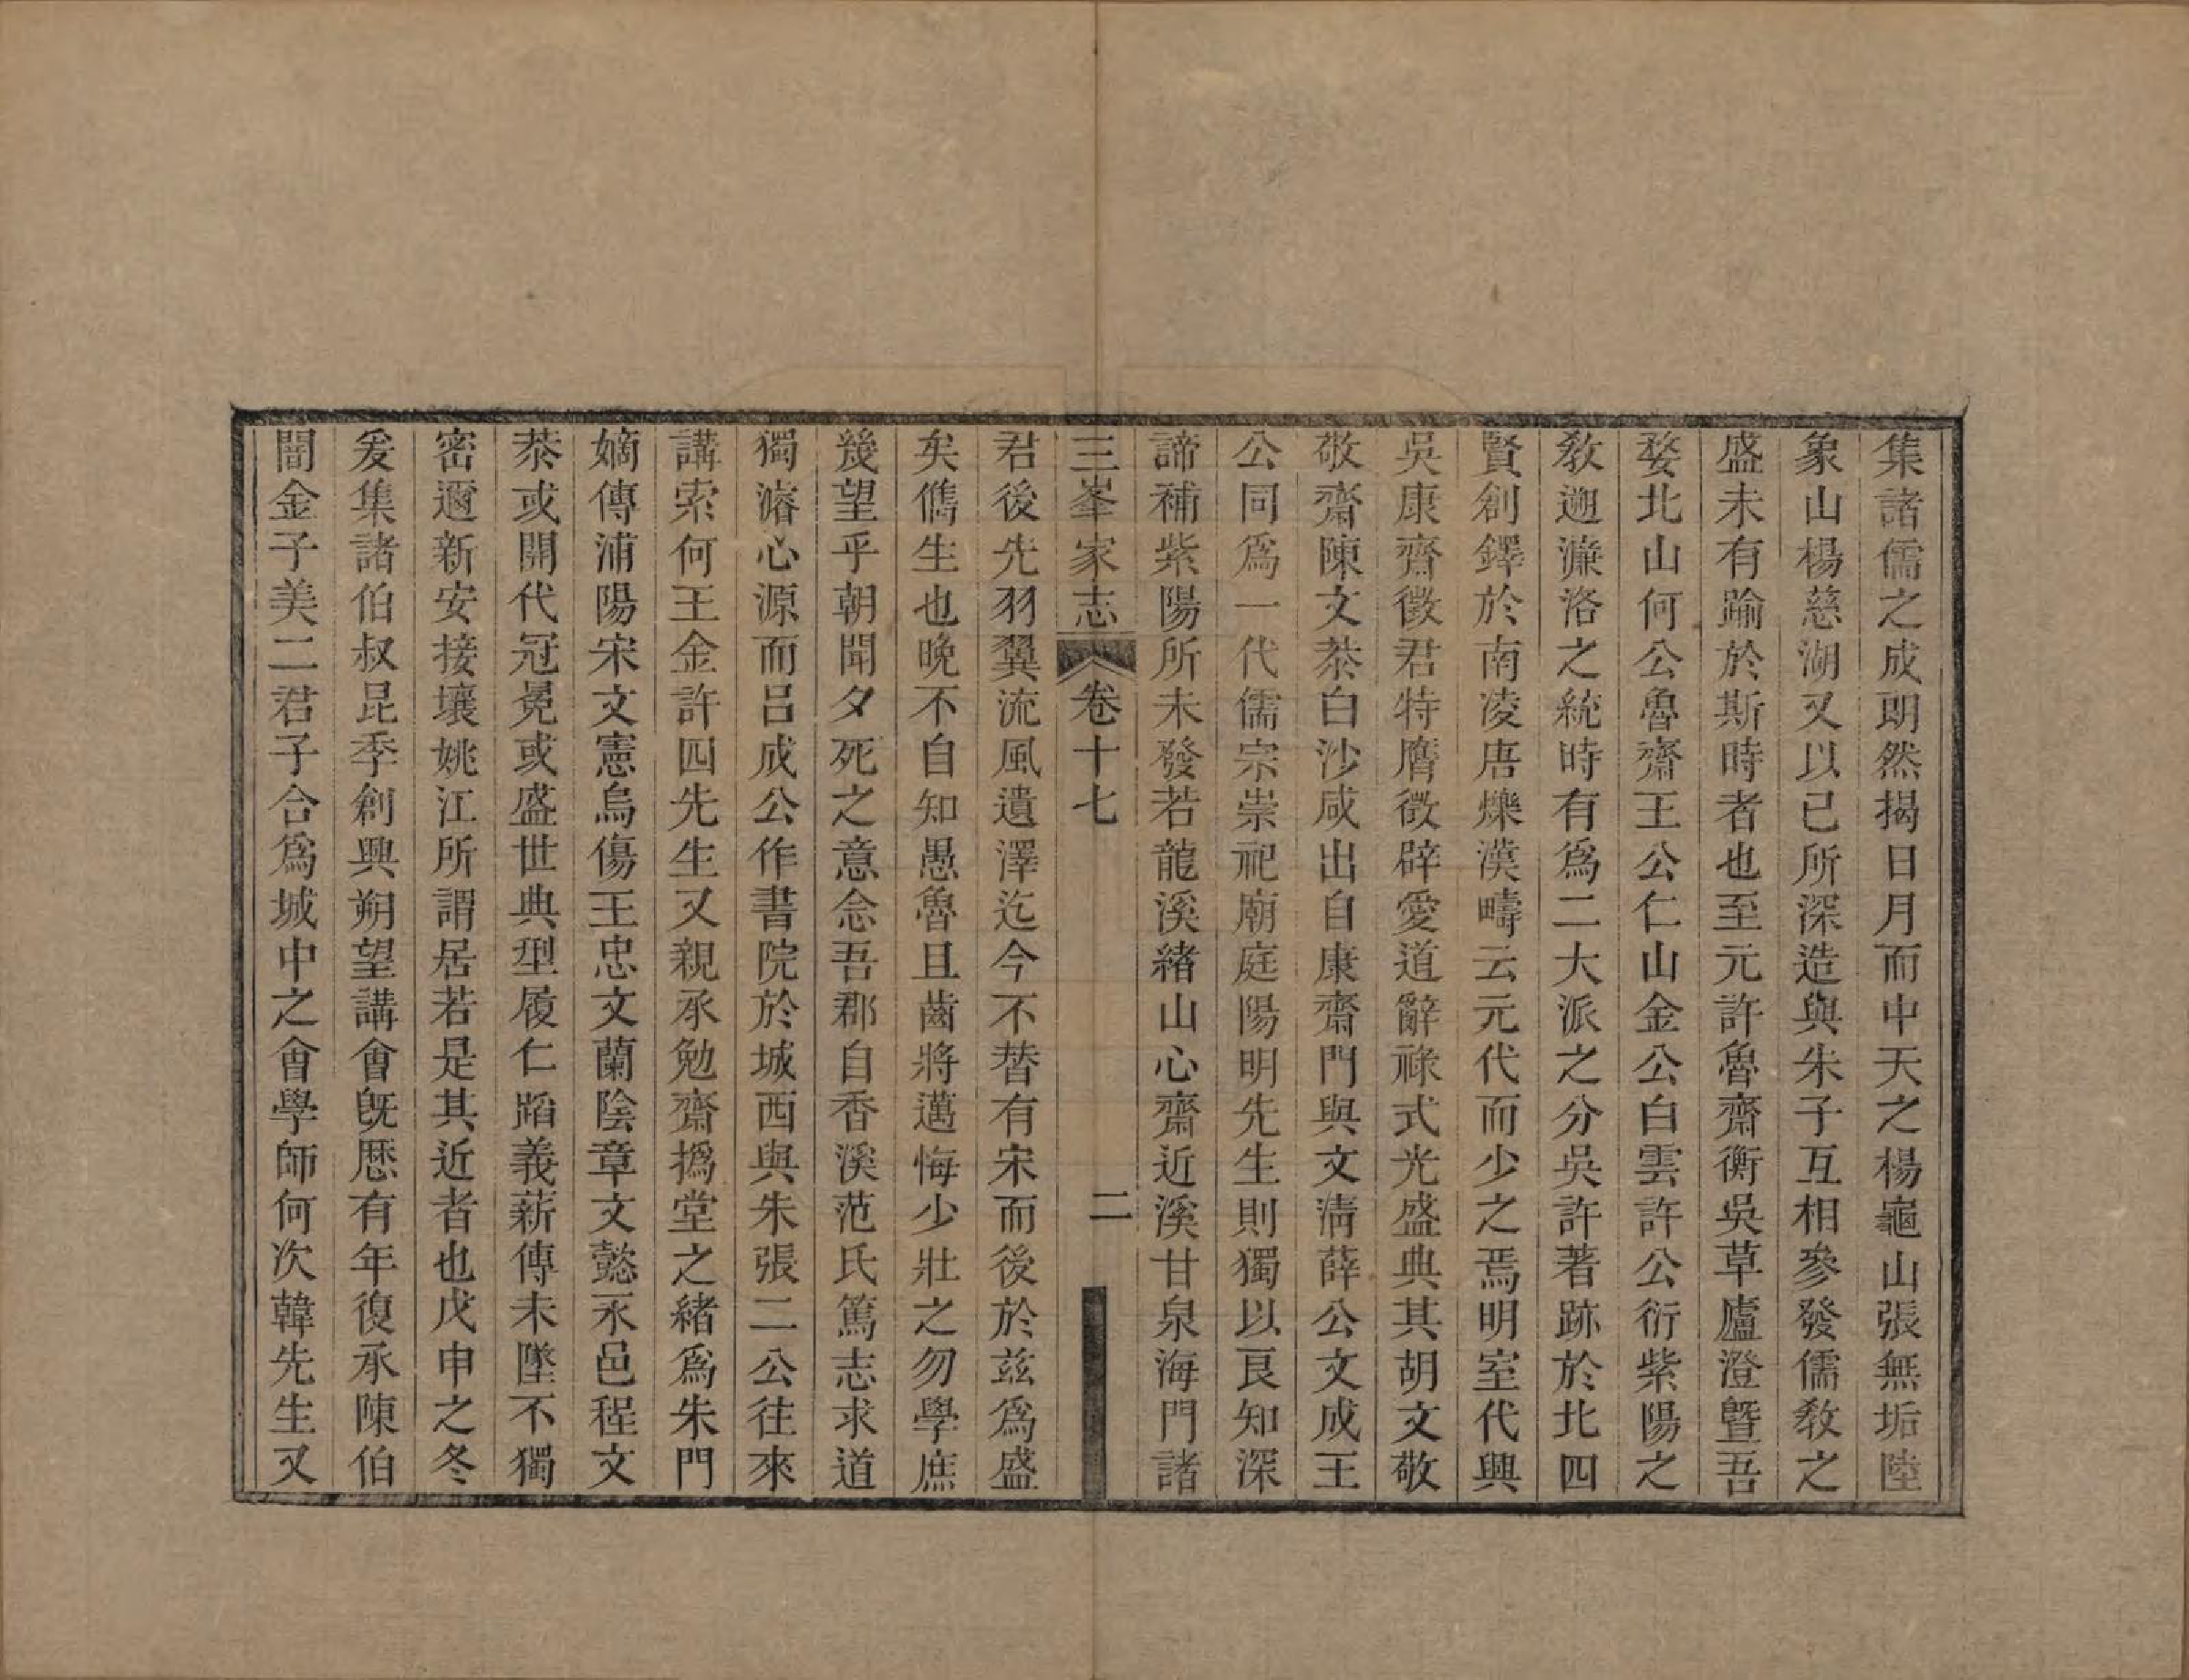 集諸儒之成朗然揭日月而中天之楊龜山張無垢陸
象山楊慈湖又以已所深造與朱子互相參發儒教之
盛未有踰於斯時者也至元許魯齋衡吳草廬澄曁吾
婺北山何公魯齋王公仁山金公白雲許公衍紫陽之
教遡濂洛之統時有爲二大派之分吳許著跡於北四
賢創鐸於南凌唐爍漢疇云元代而少之焉明室代興
吳康齋徵君特膺徵辟愛道辭祿式光盛典其胡文敬
敬齋陳文恭白沙咸出自康齋門與文淸薛公文成王
公同爲一代儒宗崇祀廟庭陽明先生則獨以良知深
諦補紫陽所未發若龍溪緒山心齋近溪甘泉海門諸
三峯家志
卷十七
二
君後先羽翼流風遺澤迄今不替有宋而後於兹爲盛
矣儁生也晚不自知愚魯且齒將邁悔少壯之勿學庶
幾望乎朝聞夕死之意念吾郡自香溪范氏篤志求道
獨濬心源而呂成公作書院於城西與朱張二公往來
講索何王金許四先生又親承勉齋撝堂之緖爲朱門
嫡傳浦陽宋文憲烏傷王忠文蘭陰章文懿永邑程文
恭或開代冠冕或盛世典型履仁蹈義薪傳未墜不獨
密邇新安接壤姚江所謂居若是其近者也戊申之冬
爰集諸伯叔昆季創興朔望講會旣歷有年復承陳伯
闇金子美二君子合爲城中之會學師何次韓先生又